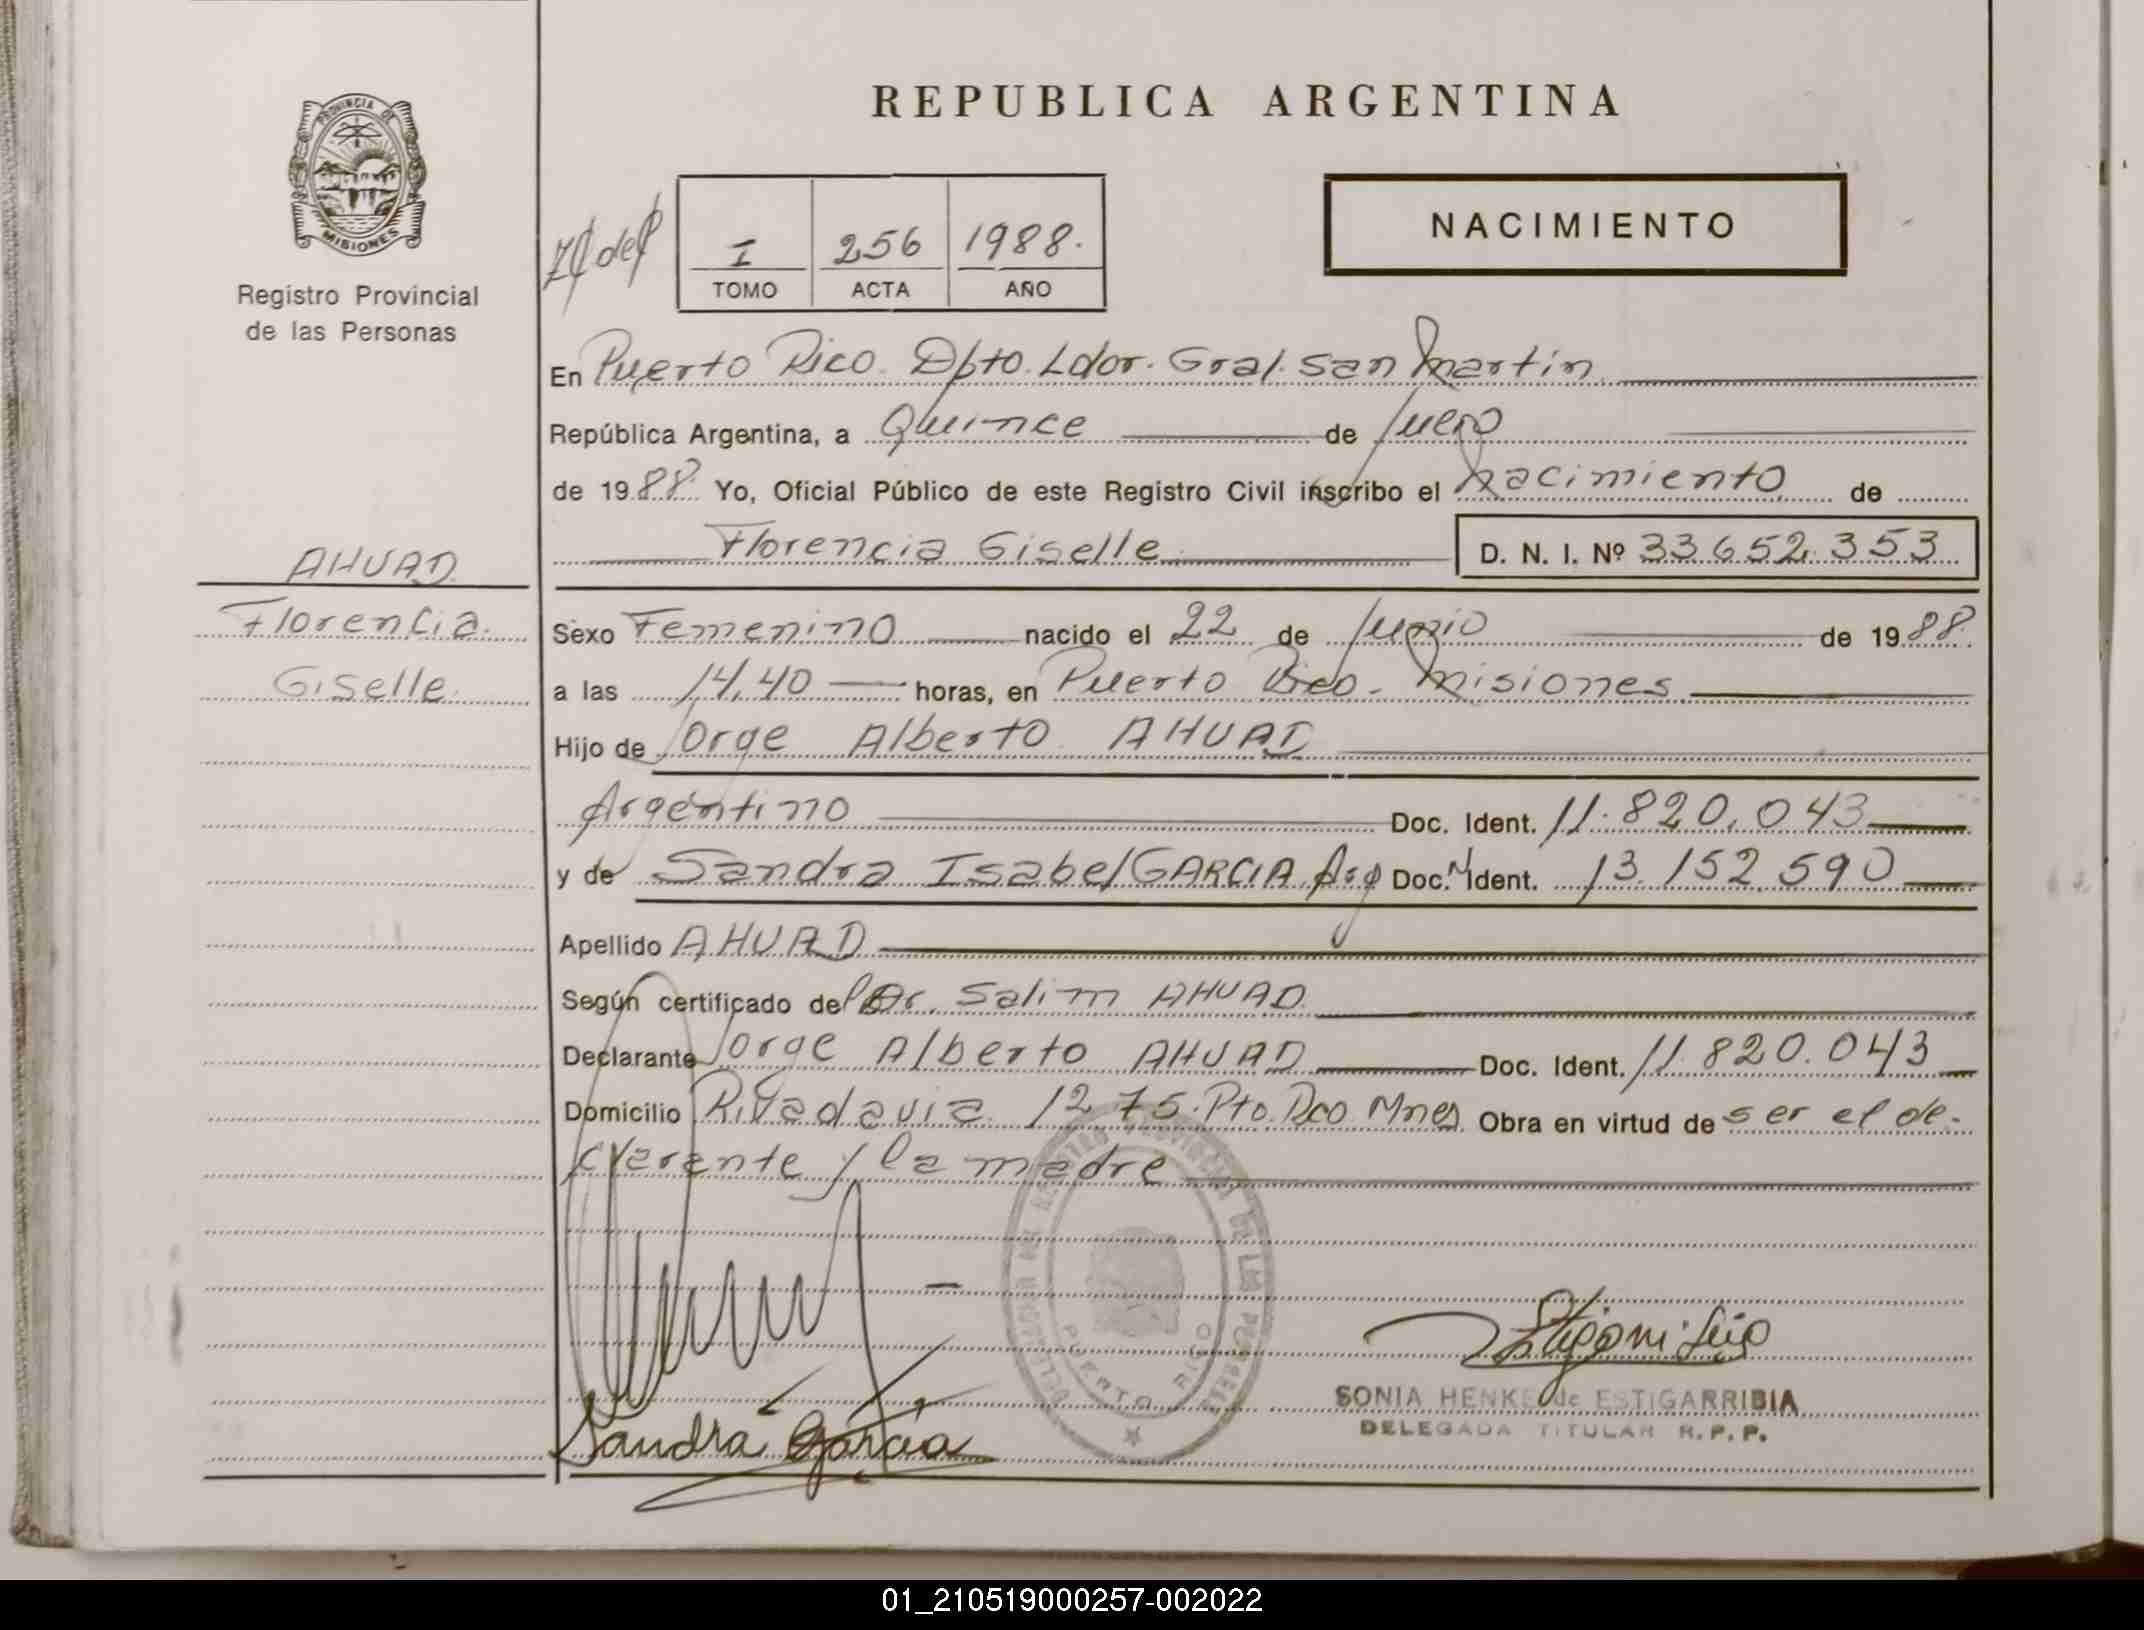 REPUBLICA ARGENTINA
PROVINCIA DE
MISIONES
Registro Provincial
de las Personas
I 256 1988.
TOMO ACTA AÑO
NACIMIENTO
En Puerto Rico Dpto. Ldor. Gral. San Martín
República Argentina, a Quince de Julio
de 1988 Yo, Oficial Público de este Registro Civil inscribo el nacimiento de
Florencia Giselle D. N. I. Nº 33.652.353
AHUAD
Florencia
Giselle
Sexo Femenino nacido el 22 de Junio de 1988.
a las 14,40 horas, en Puerto Rico - Misiones
Hijo de Jorge Alberto AHUAD
Argentino Doc. Ident. 11.820.043
y de Sandra Isabel GARCIA Arg Doc. Ident. 13.152.590
Apellido AHUAD
Según certificado del Dr. Salim AHUAD
Declarante Jorge Alberto AHUAD Doc. Ident. 11.820.043
Domicilio Rivadavia 1275. Pto. Rco Mnes Obra en virtud de ser el de-
clarante y la madre
DELEGACION DEL REGISTRO PROVINCIAL DE LAS PERSONAS
PUERTO RICO
Sandra Garcia
SONIA HENKE de ESTIGARRIBIA
DELEGADA TITULAR R. P. P.
01_210519000257-002022